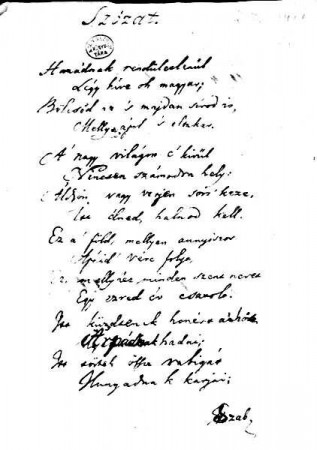 Szózat.
Hazádnak rendületlenűl
Légy híve oh magyar;
Bölcsőd ez 's majdan sírod is,
Melly ápol 's eltakar.
A' nagy világon e' kivűl
Nincsen számodra hely;
Áldjon vagy verjen sors keze,
Itt élned, halnod kell.
Ez a' föld, mellyen annyiszor
Apáid' vére folyt;
Ez, mellyhez minden szent nevet
Egy ezred év csatolt.
Itt küzdtenek honért a' hős
Árpádnak hadai;
Itt törtek össze rabigát
Hunyadnak karjai;
Szab